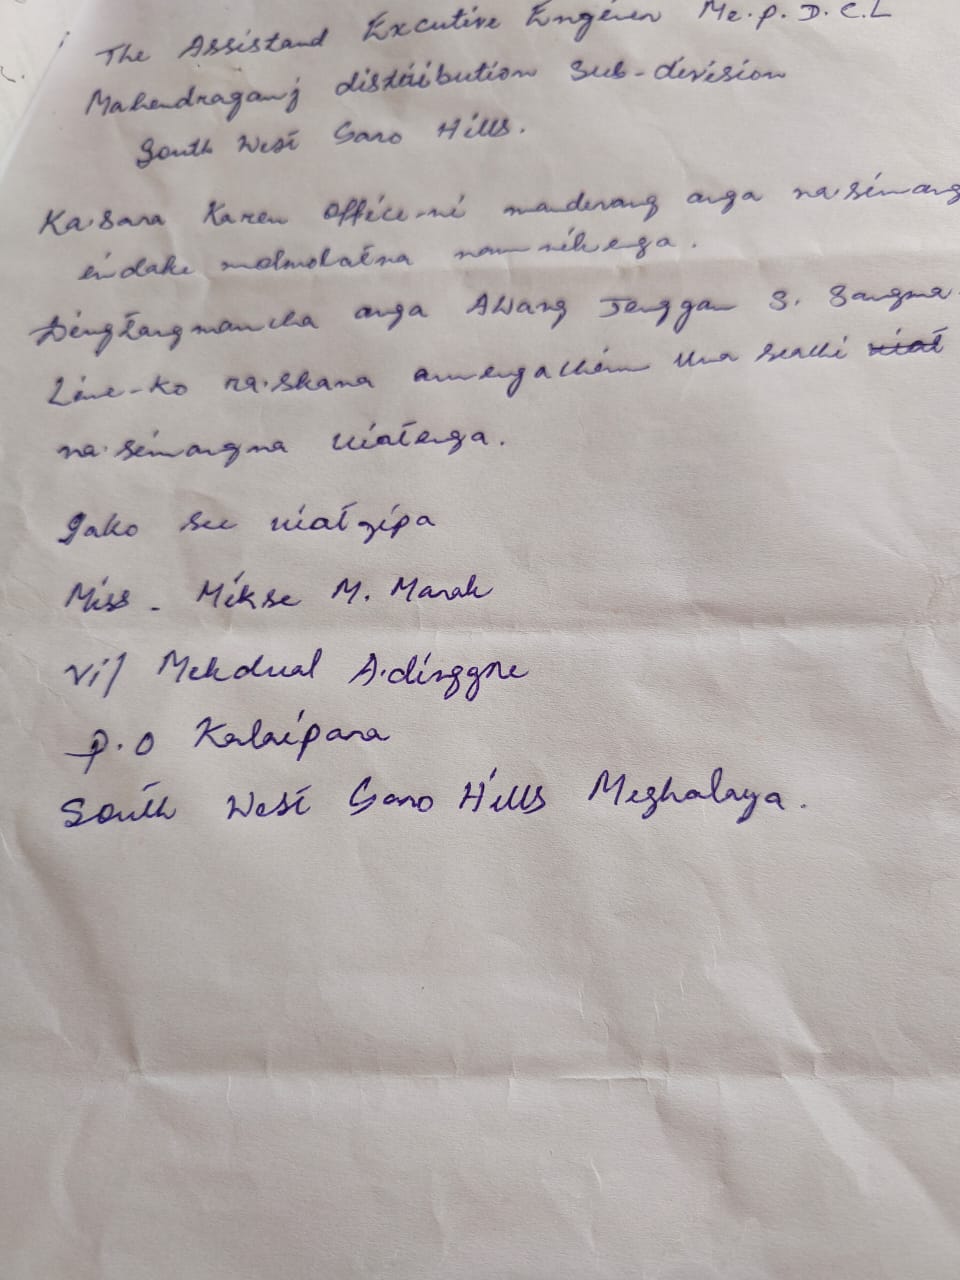 The Assistand Excutive Engener Me.p.D.C.L
Mahendraganj distribution Sub-division
South West Garo Hills.
Ka·sara Karen office-ni manderang anga na·simang
indake molmolatna nam nikenga.
Dingtangmancha anga Awang Jenggan S. Sangma
Line-ko ra·skana amengachim una skali
na·simangna uiatenga.
Iako see uiatgipa
Miss - Mikse M. Marak
Vil Mekdual A·dinggre
P.O Kalaipara
South West Garo Hills Meghalaya.